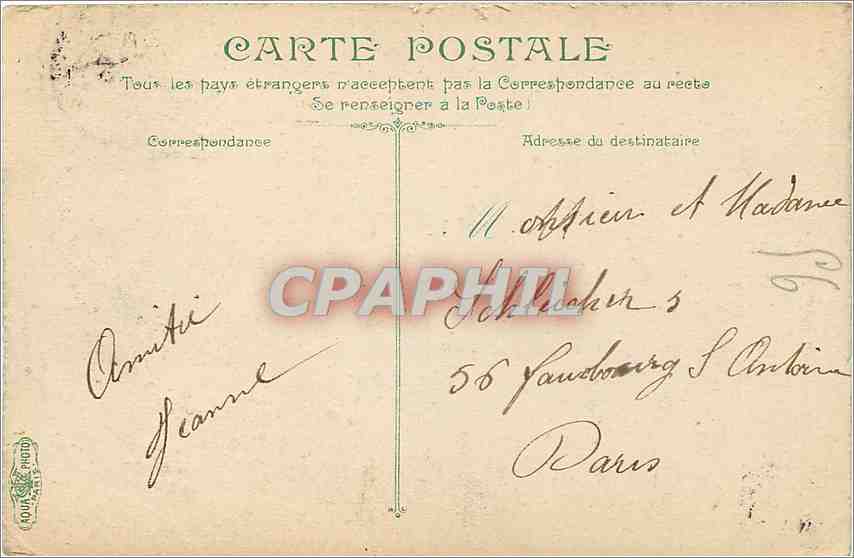 CARTE POSTALE
Tous les pays étrangers n'acceptent pas la Correspondance au recto
(Se renseigner à la Poste)
Correspondance
Adresse du destinataire
Monsieur et Madame
CPAPHIL
56 faubourg S Antoine
Paris
Amitié
Jeanne
AQUA PHOTO
PARIS